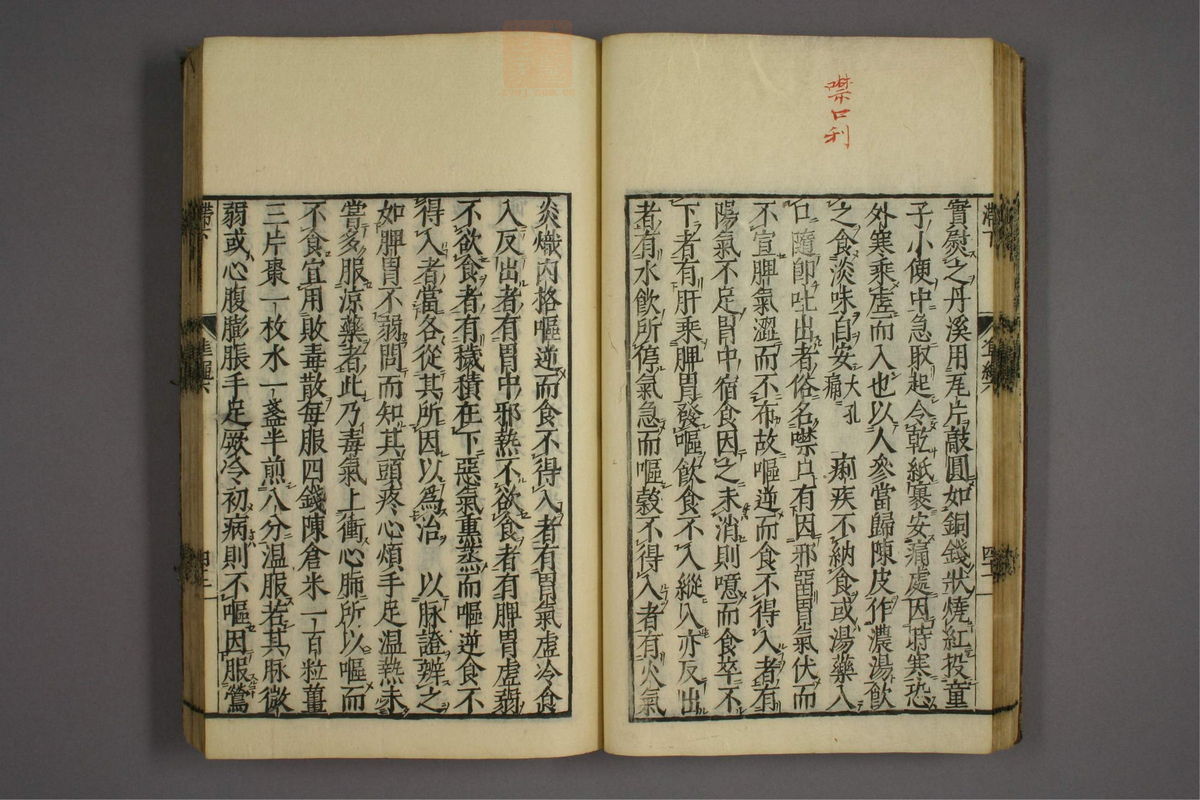 噤口利
實熨之丹溪用瓦片敲圓如銅錢狀燒紅投童
子小便中急取起令乾紙裹安痛處因時寒恐
外寒乘虛而入也以人參當歸陳皮作濃湯飲
之食淡味自安大孔痛 痢疾不納食或湯藥入
口隨即吐出者俗名噤口有因邪留胃氣伏而
不宣脾氣澀而不布故嘔逆而食不得入者有
陽氣不足胃中宿食因之未消則噫而食卒不
下者有肝乘脾胃發嘔飲食不入縱入亦反出
者有水飲所停氣急而嘔穀不得入者有火氣
炎熾內格嘔逆而食不得入者有胃氣虛冷食
入反出者有胃中邪熱不欲食者有脾胃虛弱
不欲食者有穢積在下惡氣熏蒸而嘔逆食不
得入者當各從其所因以為治 以脉證辨之
如脾胃不弱問而知其頭疼心煩手足溫熱未
嘗多服涼藥者此乃毒氣上衝心肺所以嘔而
不食宜用敗毒散每服四錢陳倉米一百粒薑
三片棗一枚水一盞半煎八分溫服若其脉微
弱或心腹膨脹手足厥冷初病則不嘔因服鶯
滯下 準繩六 四十二